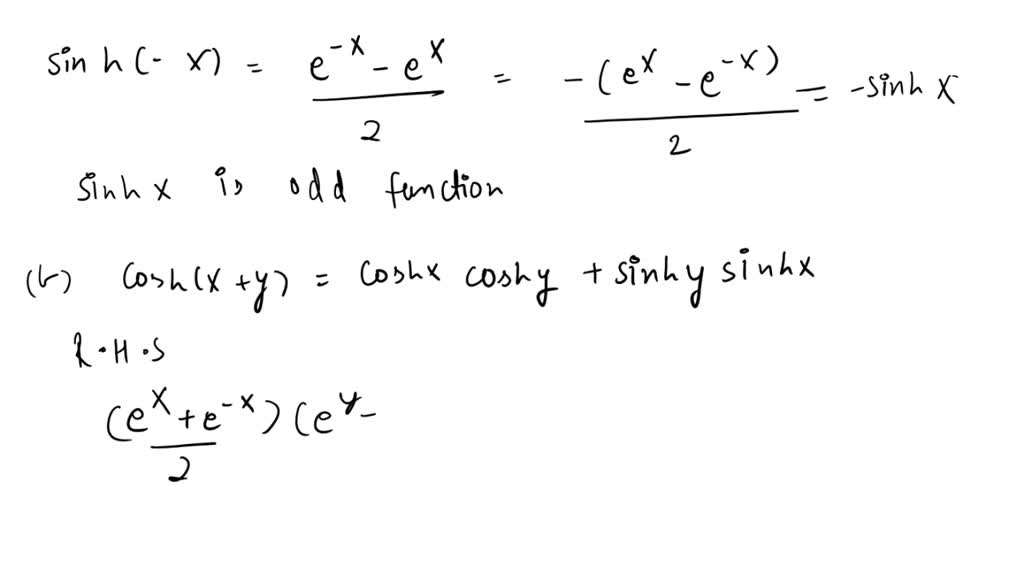 sinh(-x) = (e^-x - e^x)/2 = -(e^x - e^-x)/2 = -sinh x
sinh x is odd function
(b) cosh(x+y) = coshx coshy + sinhy sinhx
R.H.S
(e^x + e^-x)/2 (e^y-